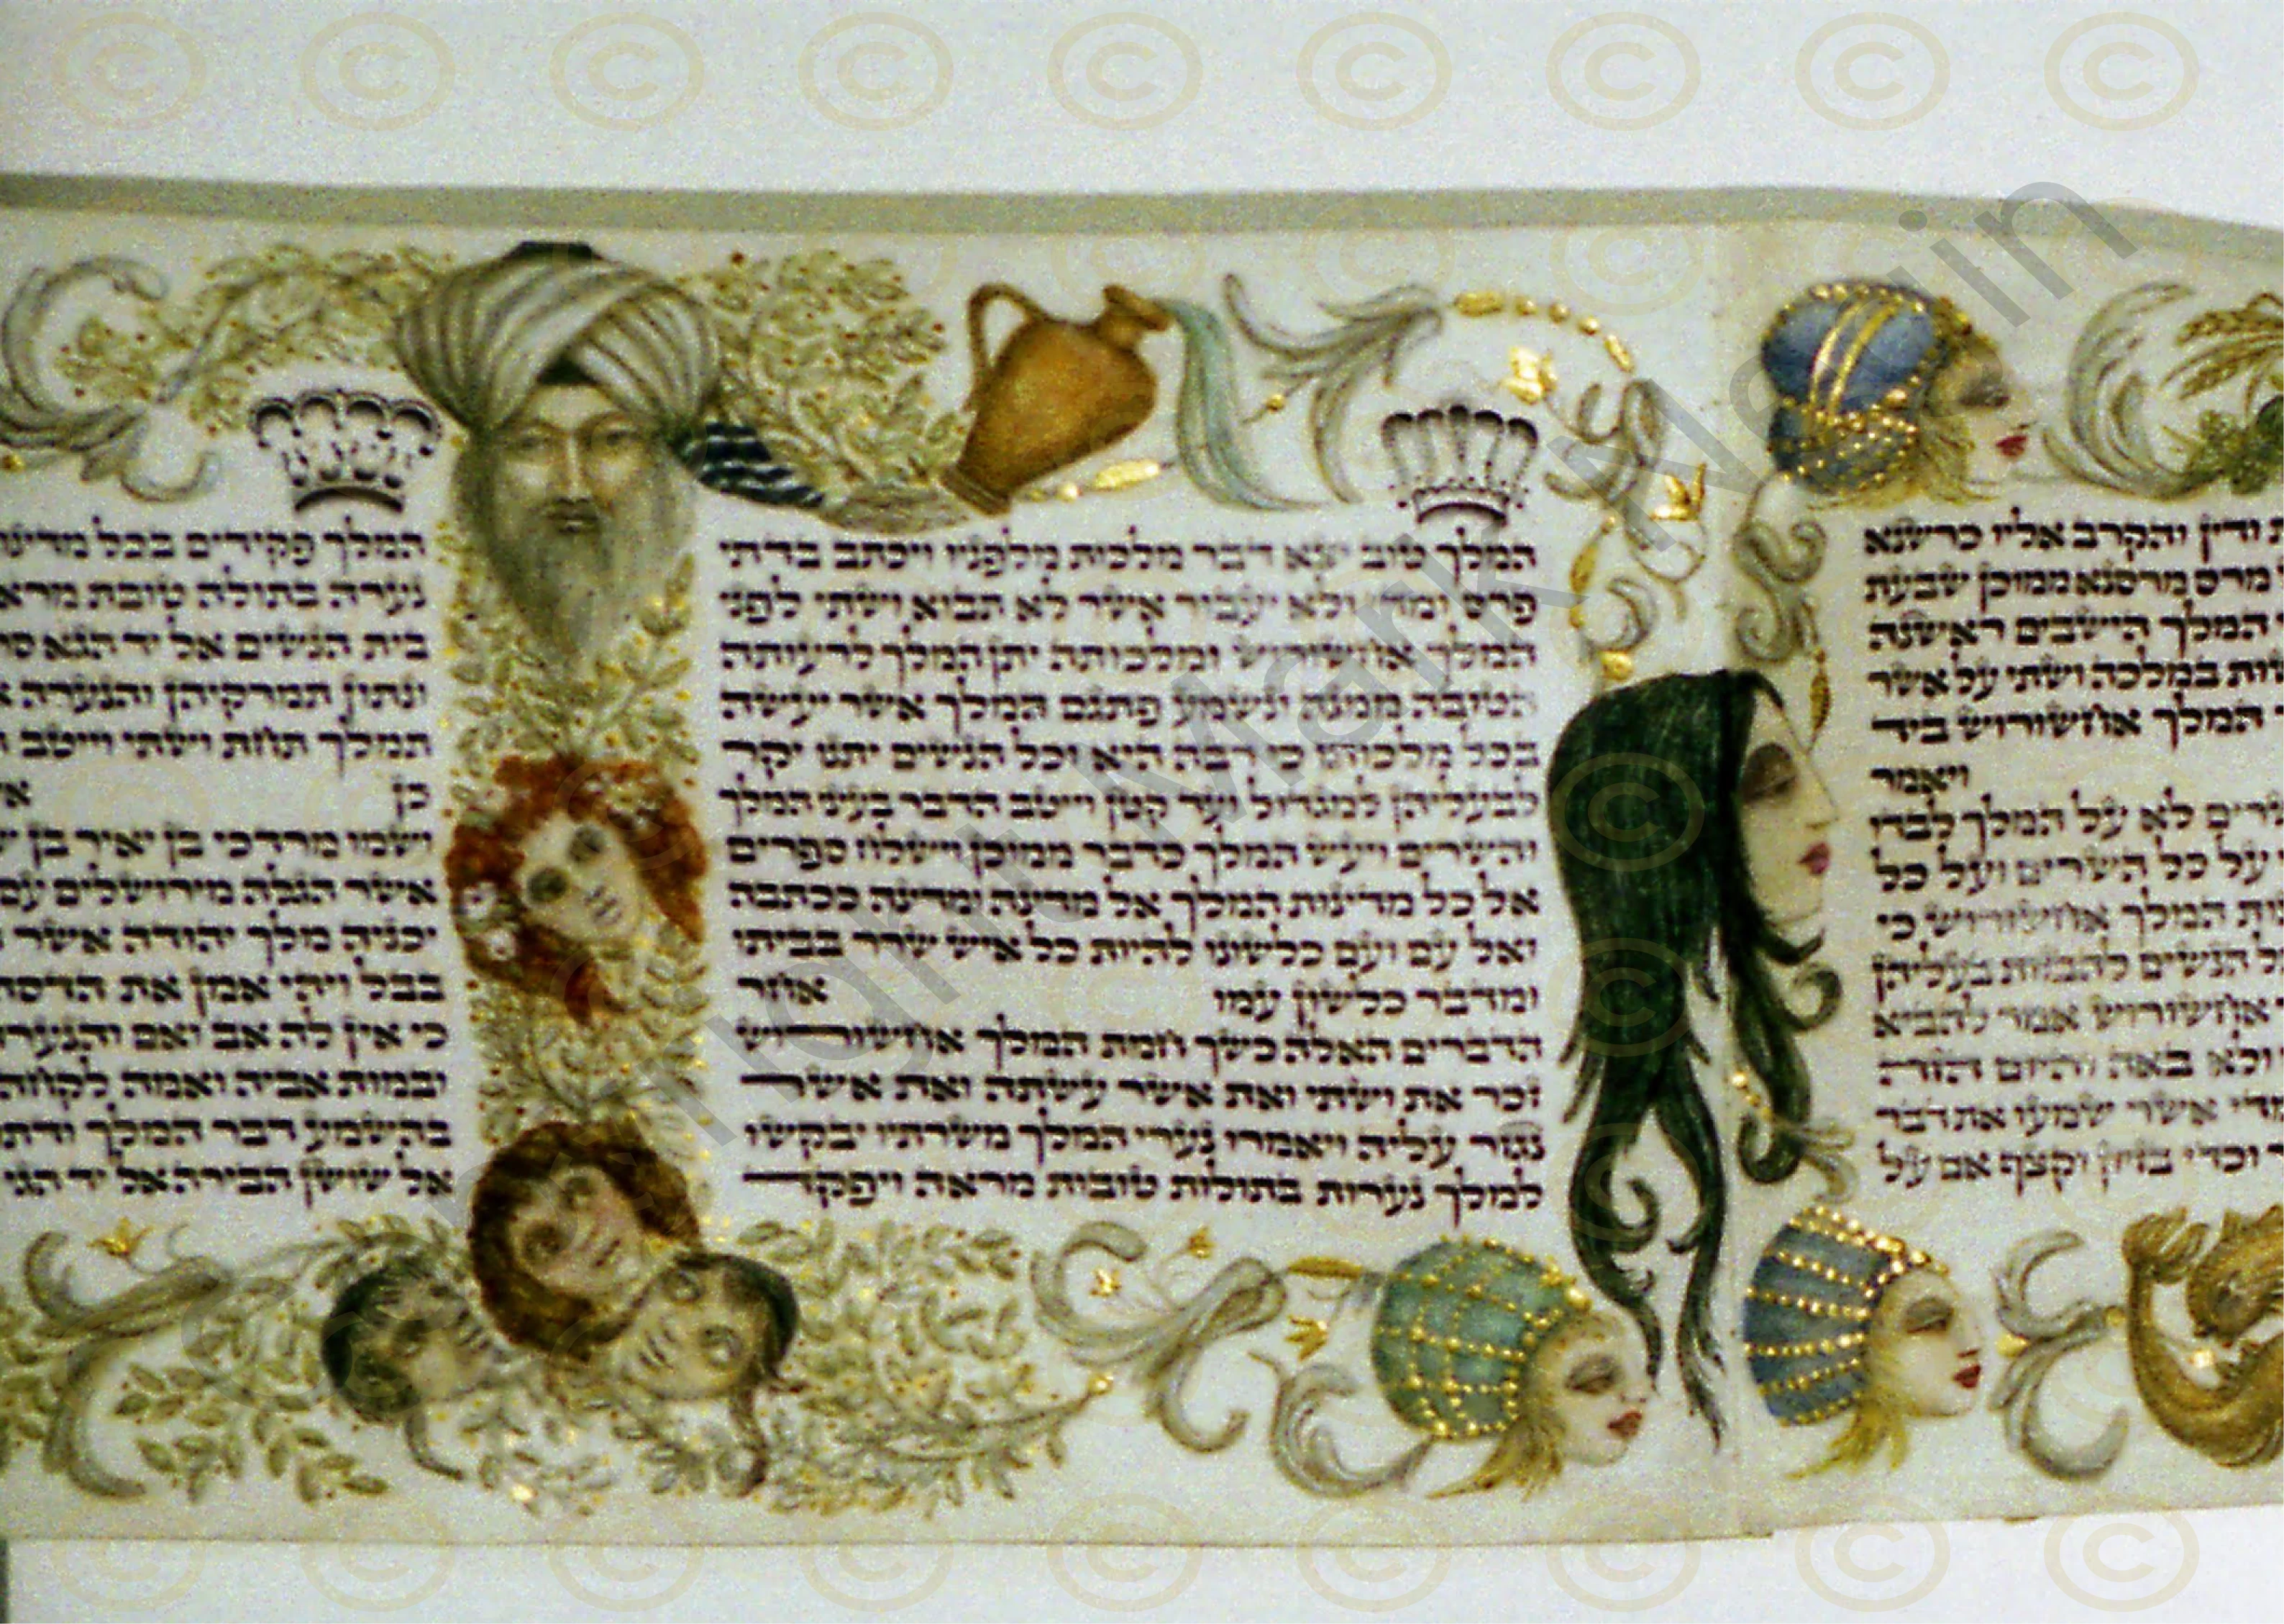 ודין והקרב אליו כרשנא
מרס מרסנא ממוכן שבעת
המלך הישבים ראשנה
במלכה ושתי על אשר
המלך אחשורוש ביד
ויאמר
לא על המלך לבדו
על כל השרים ועל כל
המלך אחשורוש כי
הנשים להבזות בעליהן
אחשורוש אמר להביא
ולא באה והיום הזה
אשר שמעו את דבר
וכדי בזיון וקצף אם על
המלך טוב יצא דבר מלכות מלפניו ויכתב בדתי
פרס ומדי ולא יעבור אשר לא תבוא ושתי לפני
המלך אחשורוש ומלכותה יתן המלך לרעותה
הטובה ממנה ונשמע פתגם המלך אשר יעשה
בכל מלכותו כי רבה היא וכל הנשים יתנו יקר
לבעליהן למגדול ועד קטן וייטב הדבר בעיני המלך
והשרים ויעש המלך כדבר ממוכן וישלח ספרים
אל כל מדינות המלך אל מדינה ומדינה ככתבה
ואל עם ועם כלשונו להיות כל איש שרר בביתו
ומדבר כלשון עמו אחר
הדברים האלה כשך חמת המלך אחשורוש
זכר את ושתי ואת אשר עשתה ואת אשר
נגזר עליה ויאמרו נערי המלך משרתיו יבקשו
למלך נערות בתולות טובות מראה ויפקד
המלך פקידים בכל
נערה בתולה טובת
בית הנשים אל יד הגא
ונתון תמרקיהן והנערה
המלך תחת ושתי וייטב
כן
ושמו מרדכי בן יאיר בן
אשר הגלה מירושלים עם
יכניה מלך יהודה אשר
בבל ויהי אמן את הדסה
כי אין לה אב ואם
ובמות אביה ואמה לקחה
בהשמע דבר המלך ודתו
אל שושן הבירה אל יד הגי
Mark